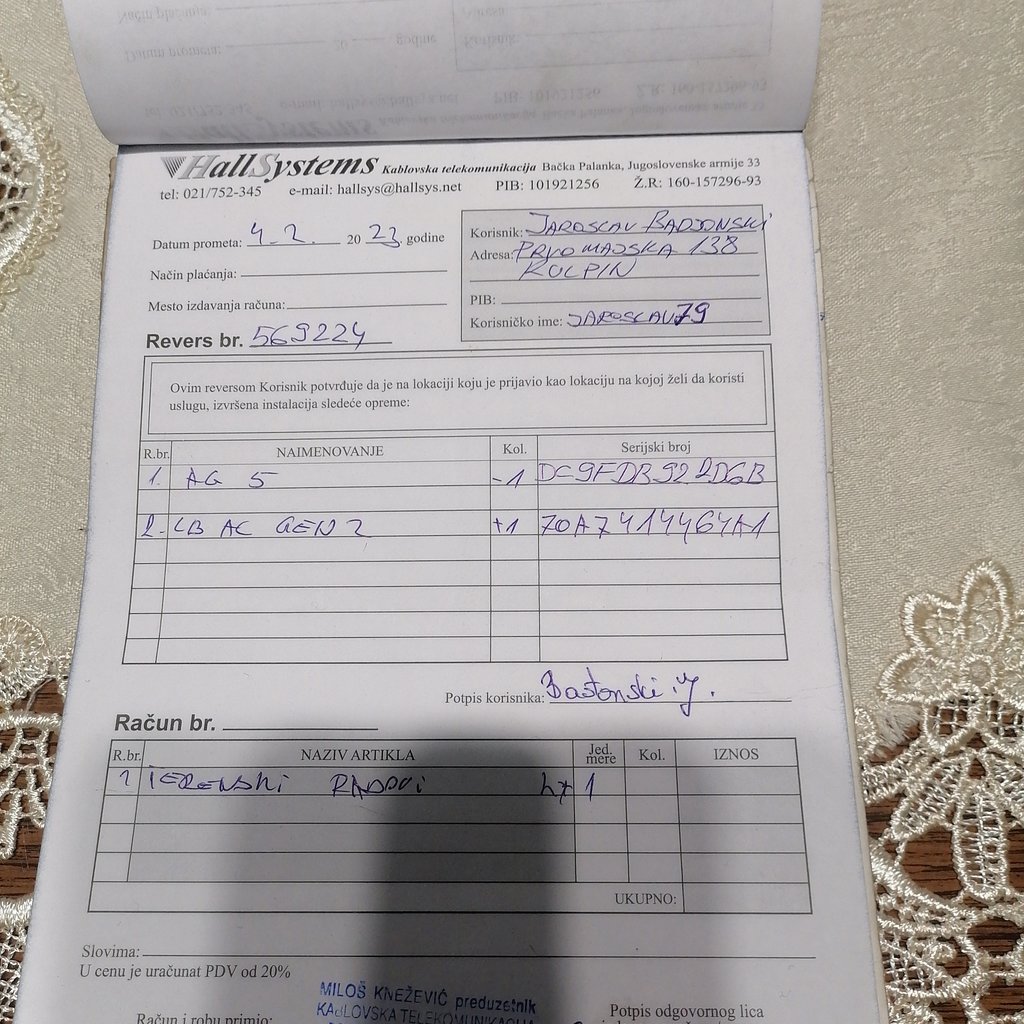 HallSystems Kablovska telekomunikacija Bačka Palanka, Jugoslovenske armije 33
tel: 021/752-345 e-mail: hallsys@hallsys.net PIB: 101921256 Ž.R: 160-157296-93
Datum prometa: 4.2. 20 23. godine
Način plaćanja:
Mesto izdavanja računa:
Revers br. 569224
Korisnik: JAROSLAV BADJONSKI
Adresa: PRVOMAJSKA 138
KULPIN
PIB:
Korisničko ime: JAROSLAV79
Ovim reversom Korisnik potvrđuje da je na lokaciji koju je prijavio kao lokaciju na kojoj želi da koristi
uslugu, izvršena instalacija sledeće opreme:
R.br. NAIMENOVANJE Kol. Serijski broj
1. AG 5 -1 DC9FDB922D6B
2. LB AC GEN 2 +1 70A7414464A1
Potpis korisnika: J.
Račun br.
R.br. NAZIV ARTIKLA Jed. mere Kol. IZNOS
1 TERENSKI RADOVI 1
UKUPNO:
Slovima:
U cenu je uračunat PDV od 20%
MILOŠ KNEŽEVIĆ preduzetnik
KABLOVSKA TELEKOMUNIKACIJA
Račun i robu primio: Potpis odgovornog lica